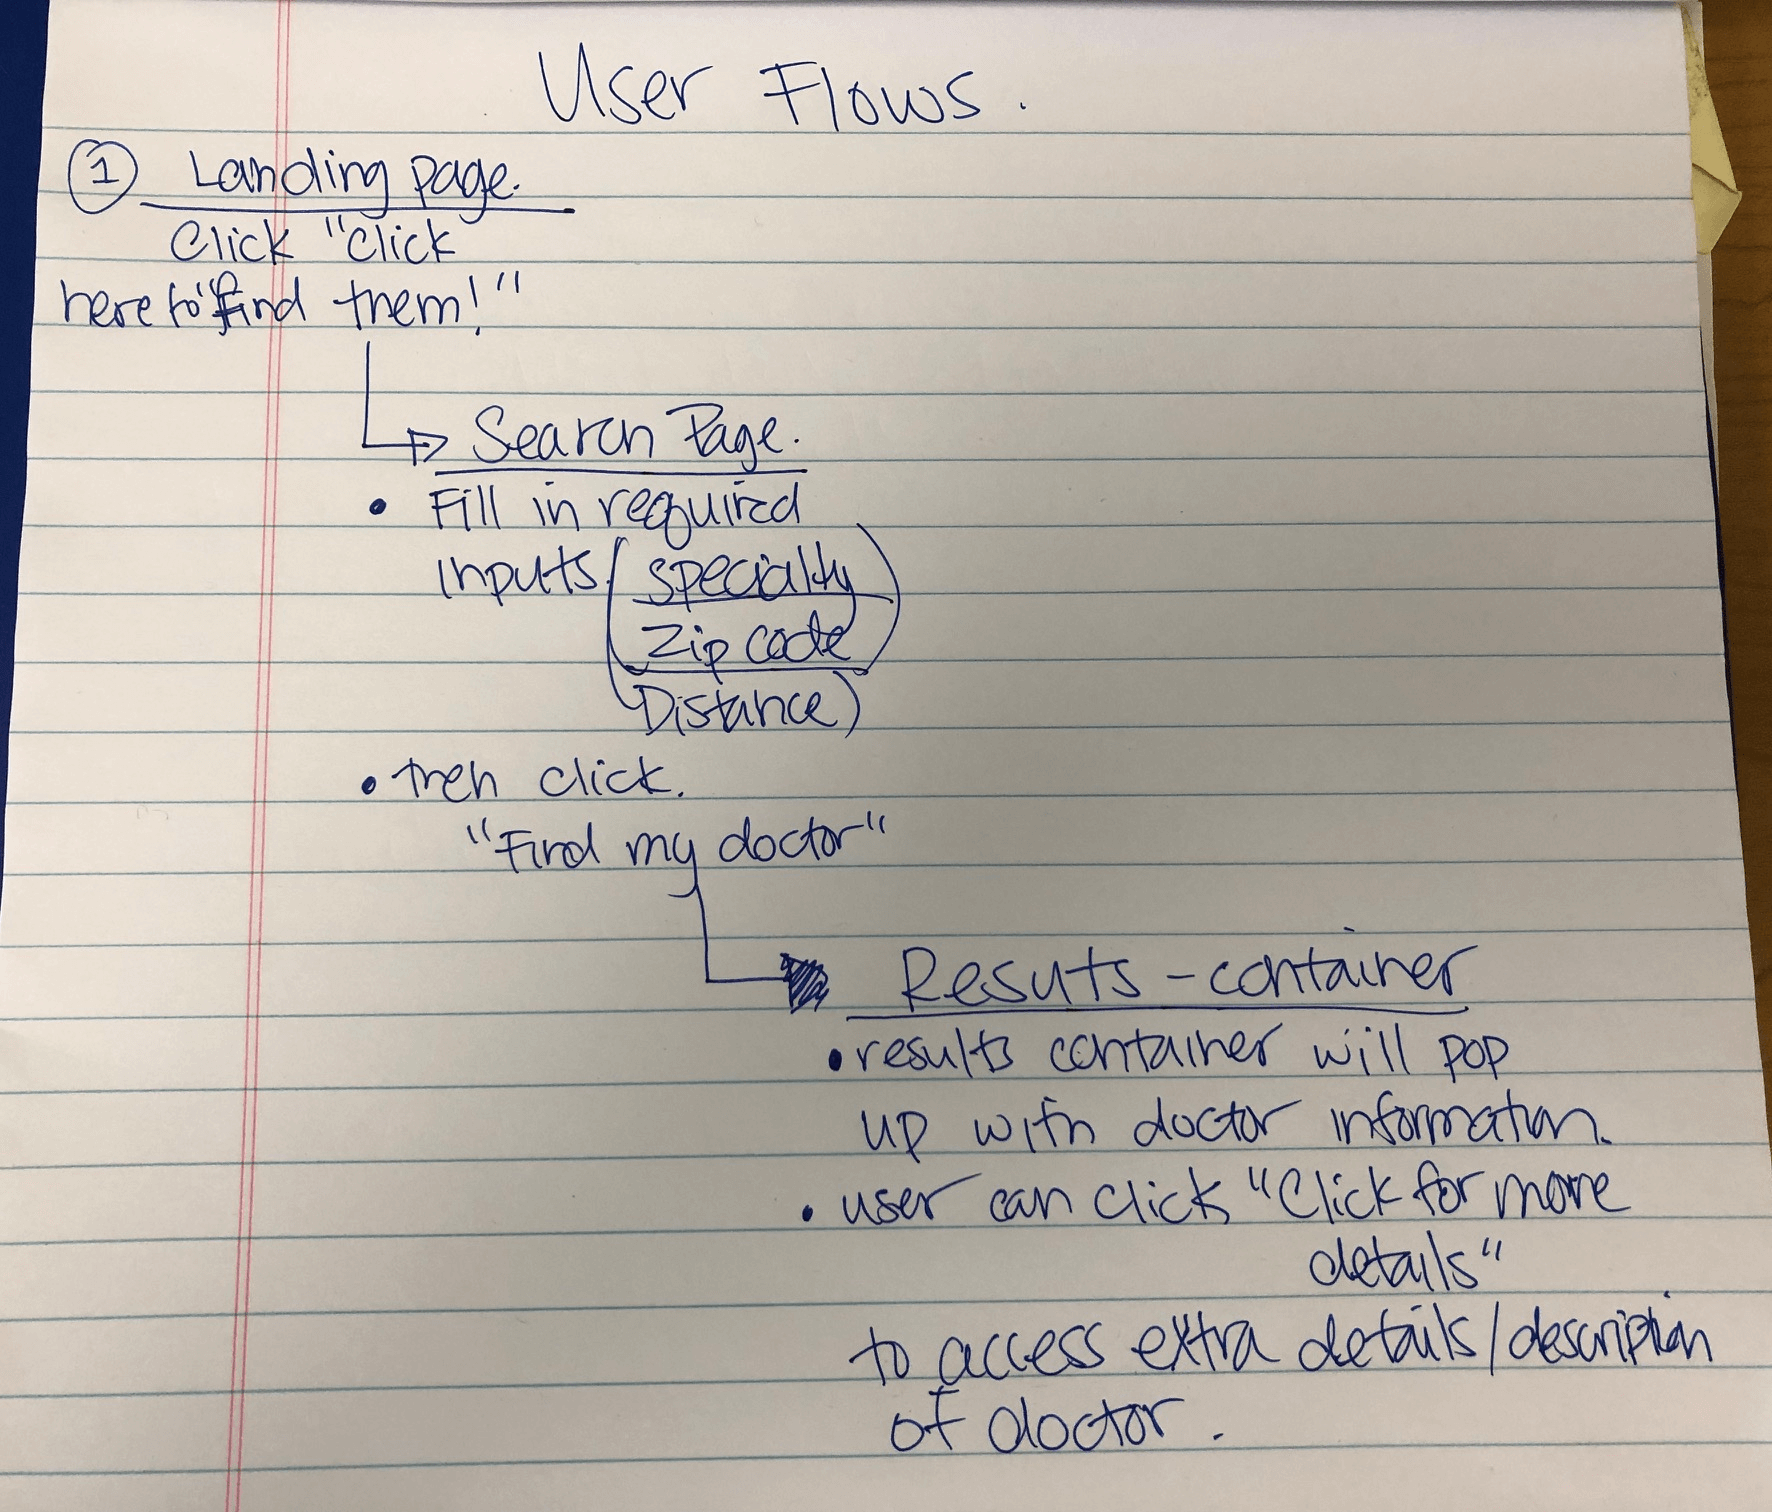 User Flows.
① Landing page.
Click "Click
here to "find them!"
Search Page.
• Fill in required
inputs (specialty
Zip code
Distance)
• then click.
"Find my doctor"
Resuts - container
• results container will pop
up with doctor information.
• user can click "Click for more
details"
to access extra details/description
of doctor.